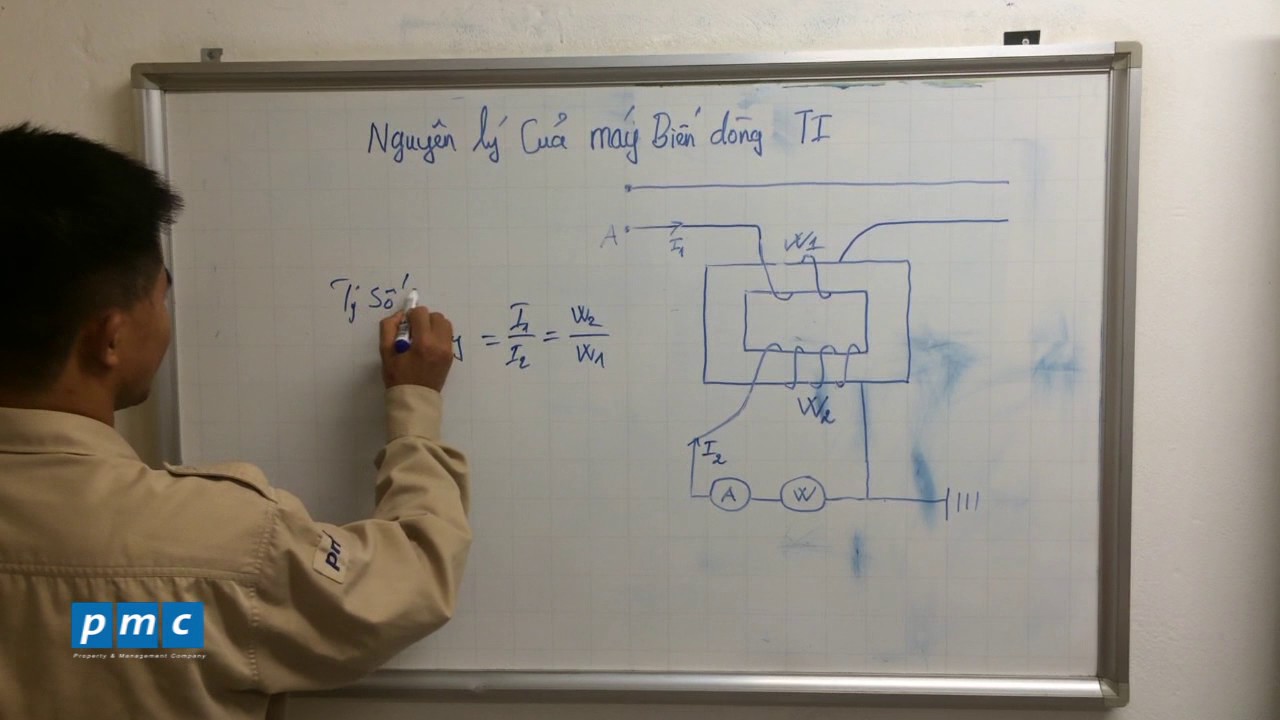 Nguyên lý Của máy Biến dòng TI
A
I₁
W1
Tỷ Số
= I₁/I₂ = W₂/W1
W₂
I₂
A W
pmc
Property & Management Company